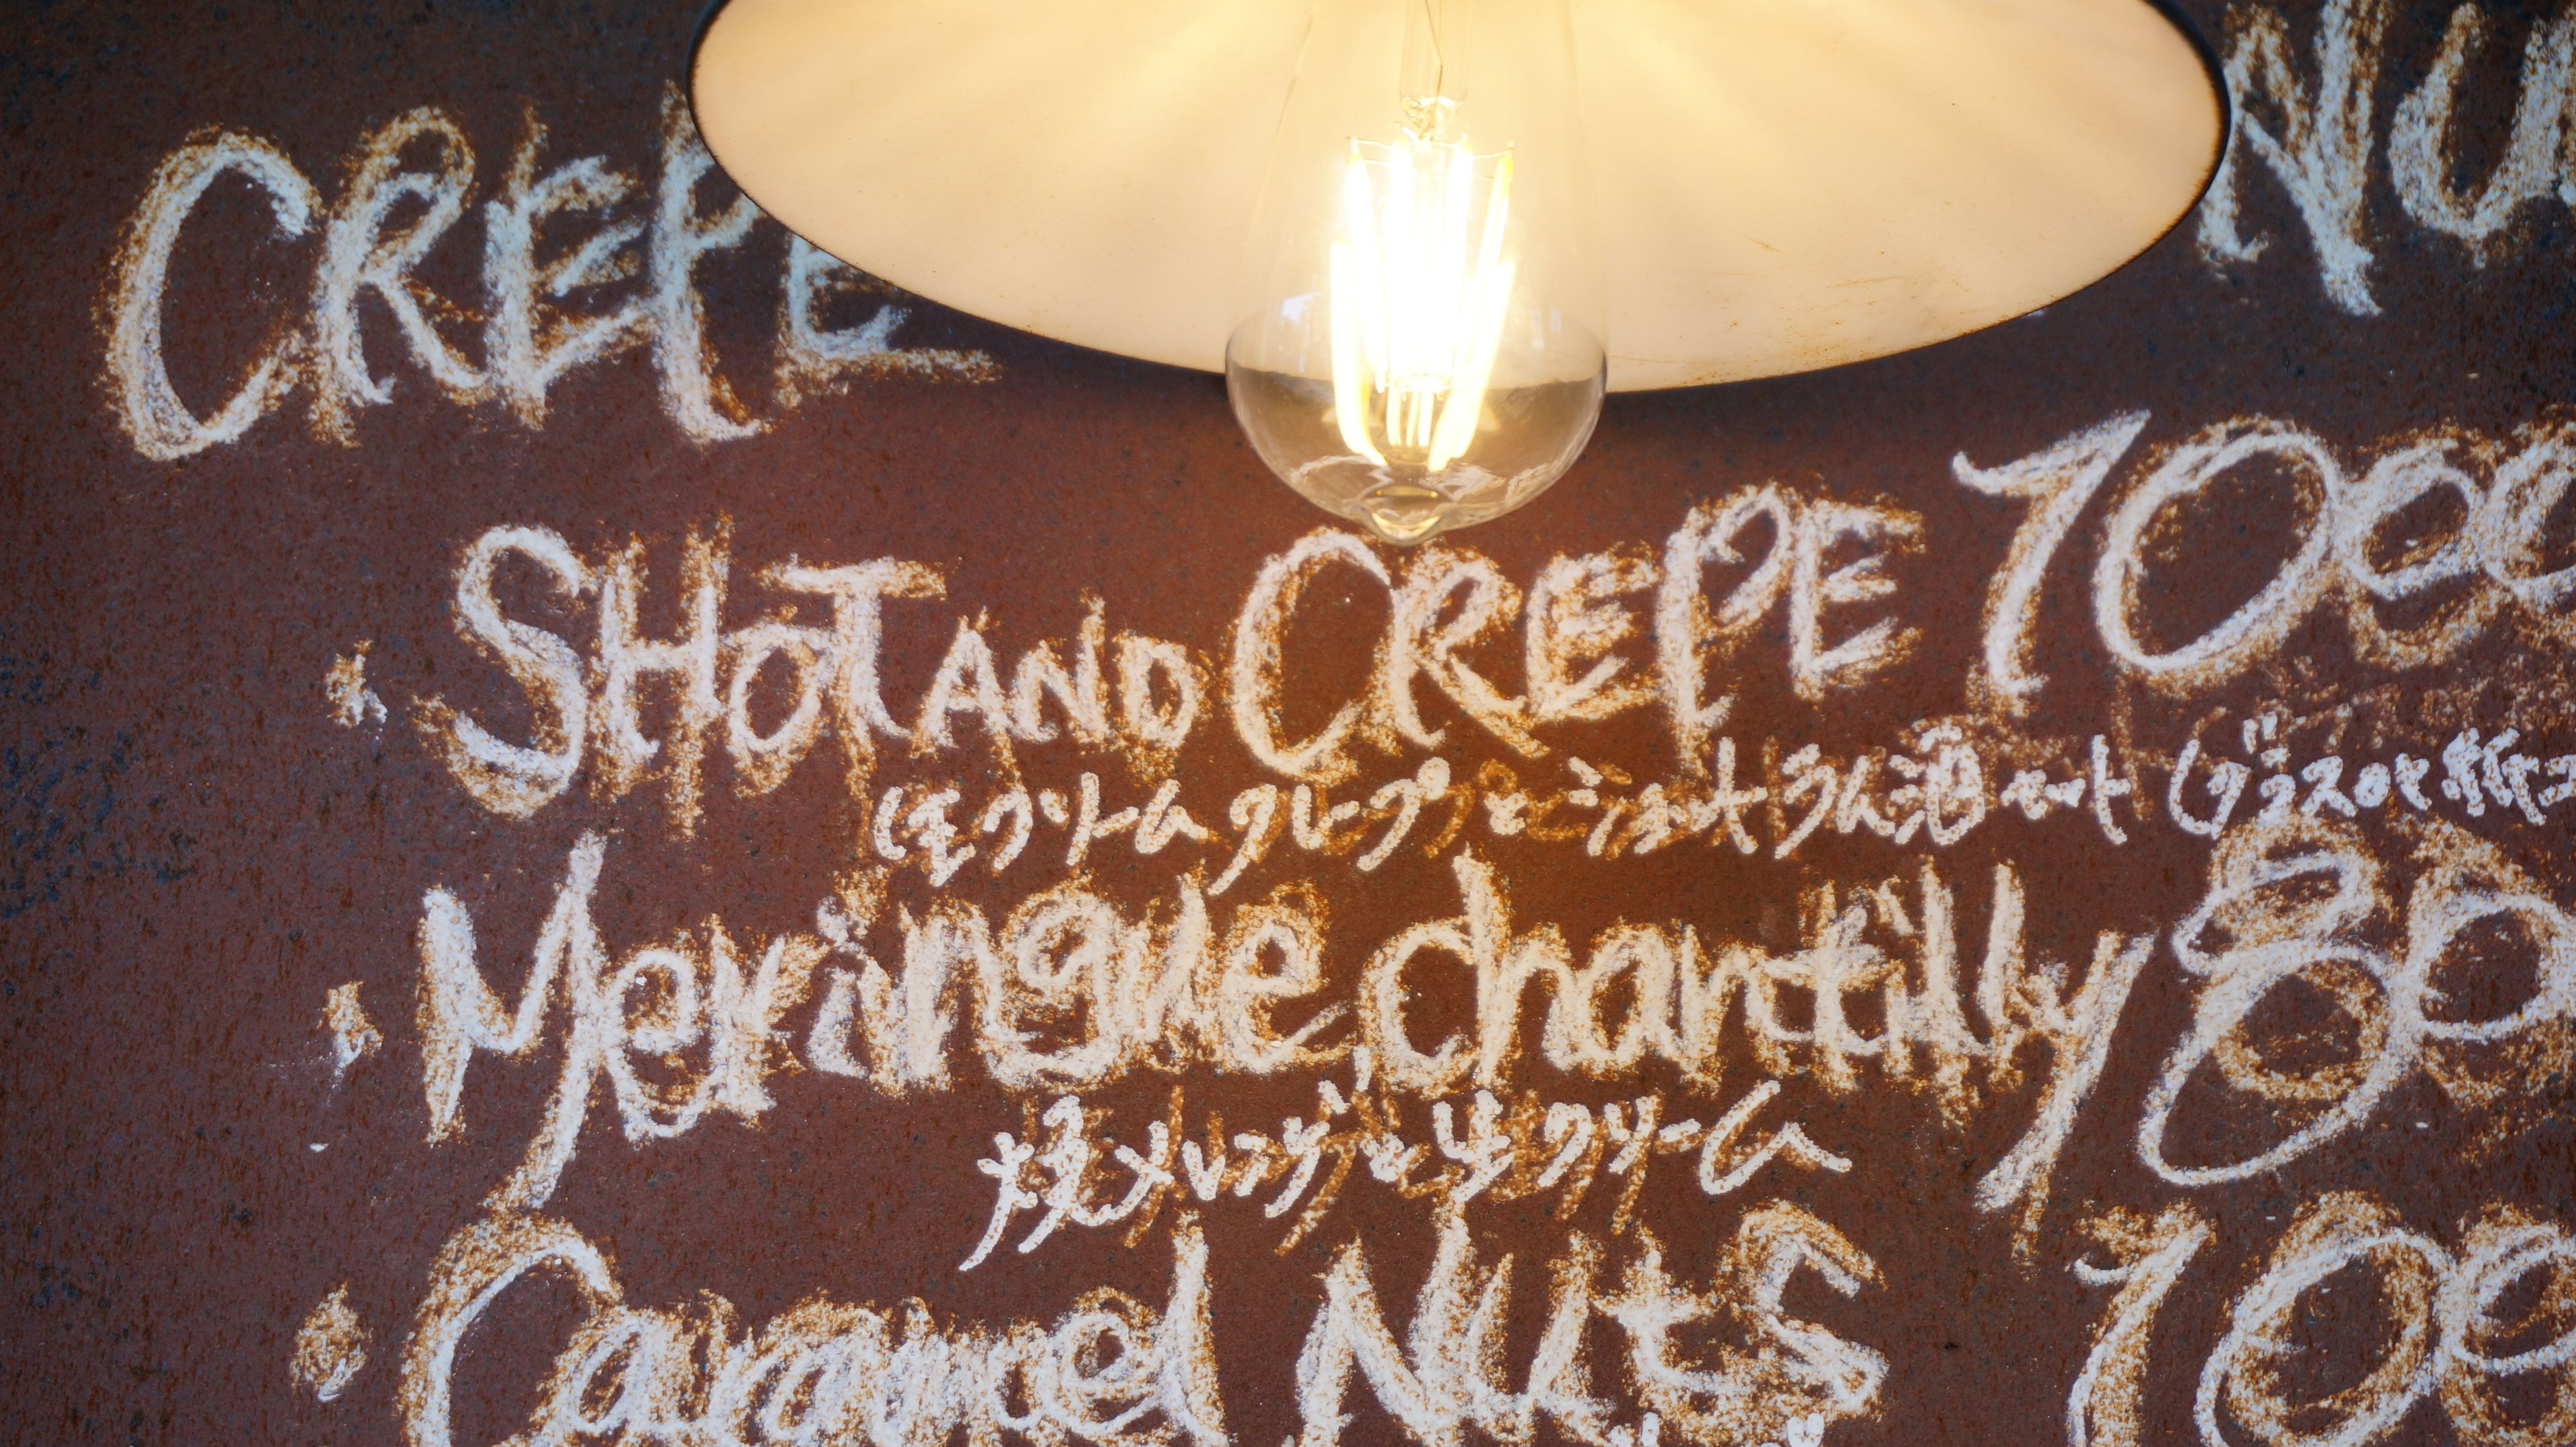 CREPE NU
・SHOT AND CREPE 1000
(生クリームクレープとショットラム酒セット(グラスor紙コ
・Meringue chantilly 80
焼メレンゲと生クリーム
・Caramel Nuts 100